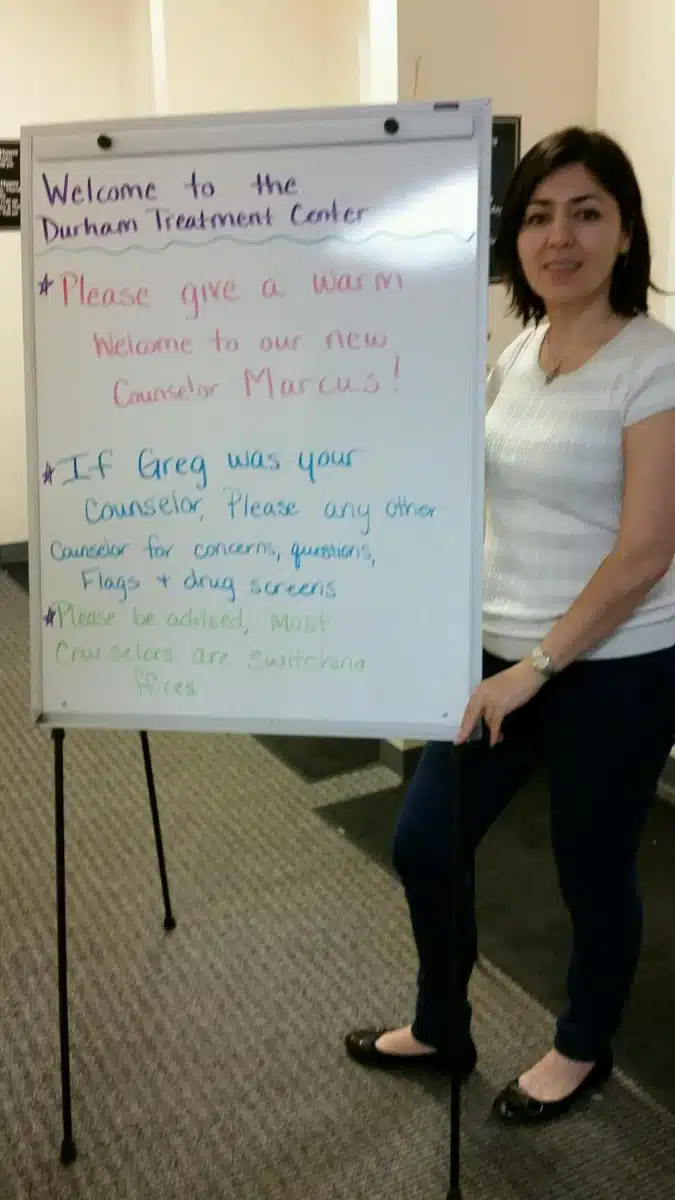 Welcome to the
Durham Treatment Center
*Please give a warm
Welcome to our new
Counselor Marcus!
*If Greg was your
Counselor, Please any other
Counselor for concerns, questions,
Flags + drug screens
*Please be advised, Most
Counselors are switching
ffices